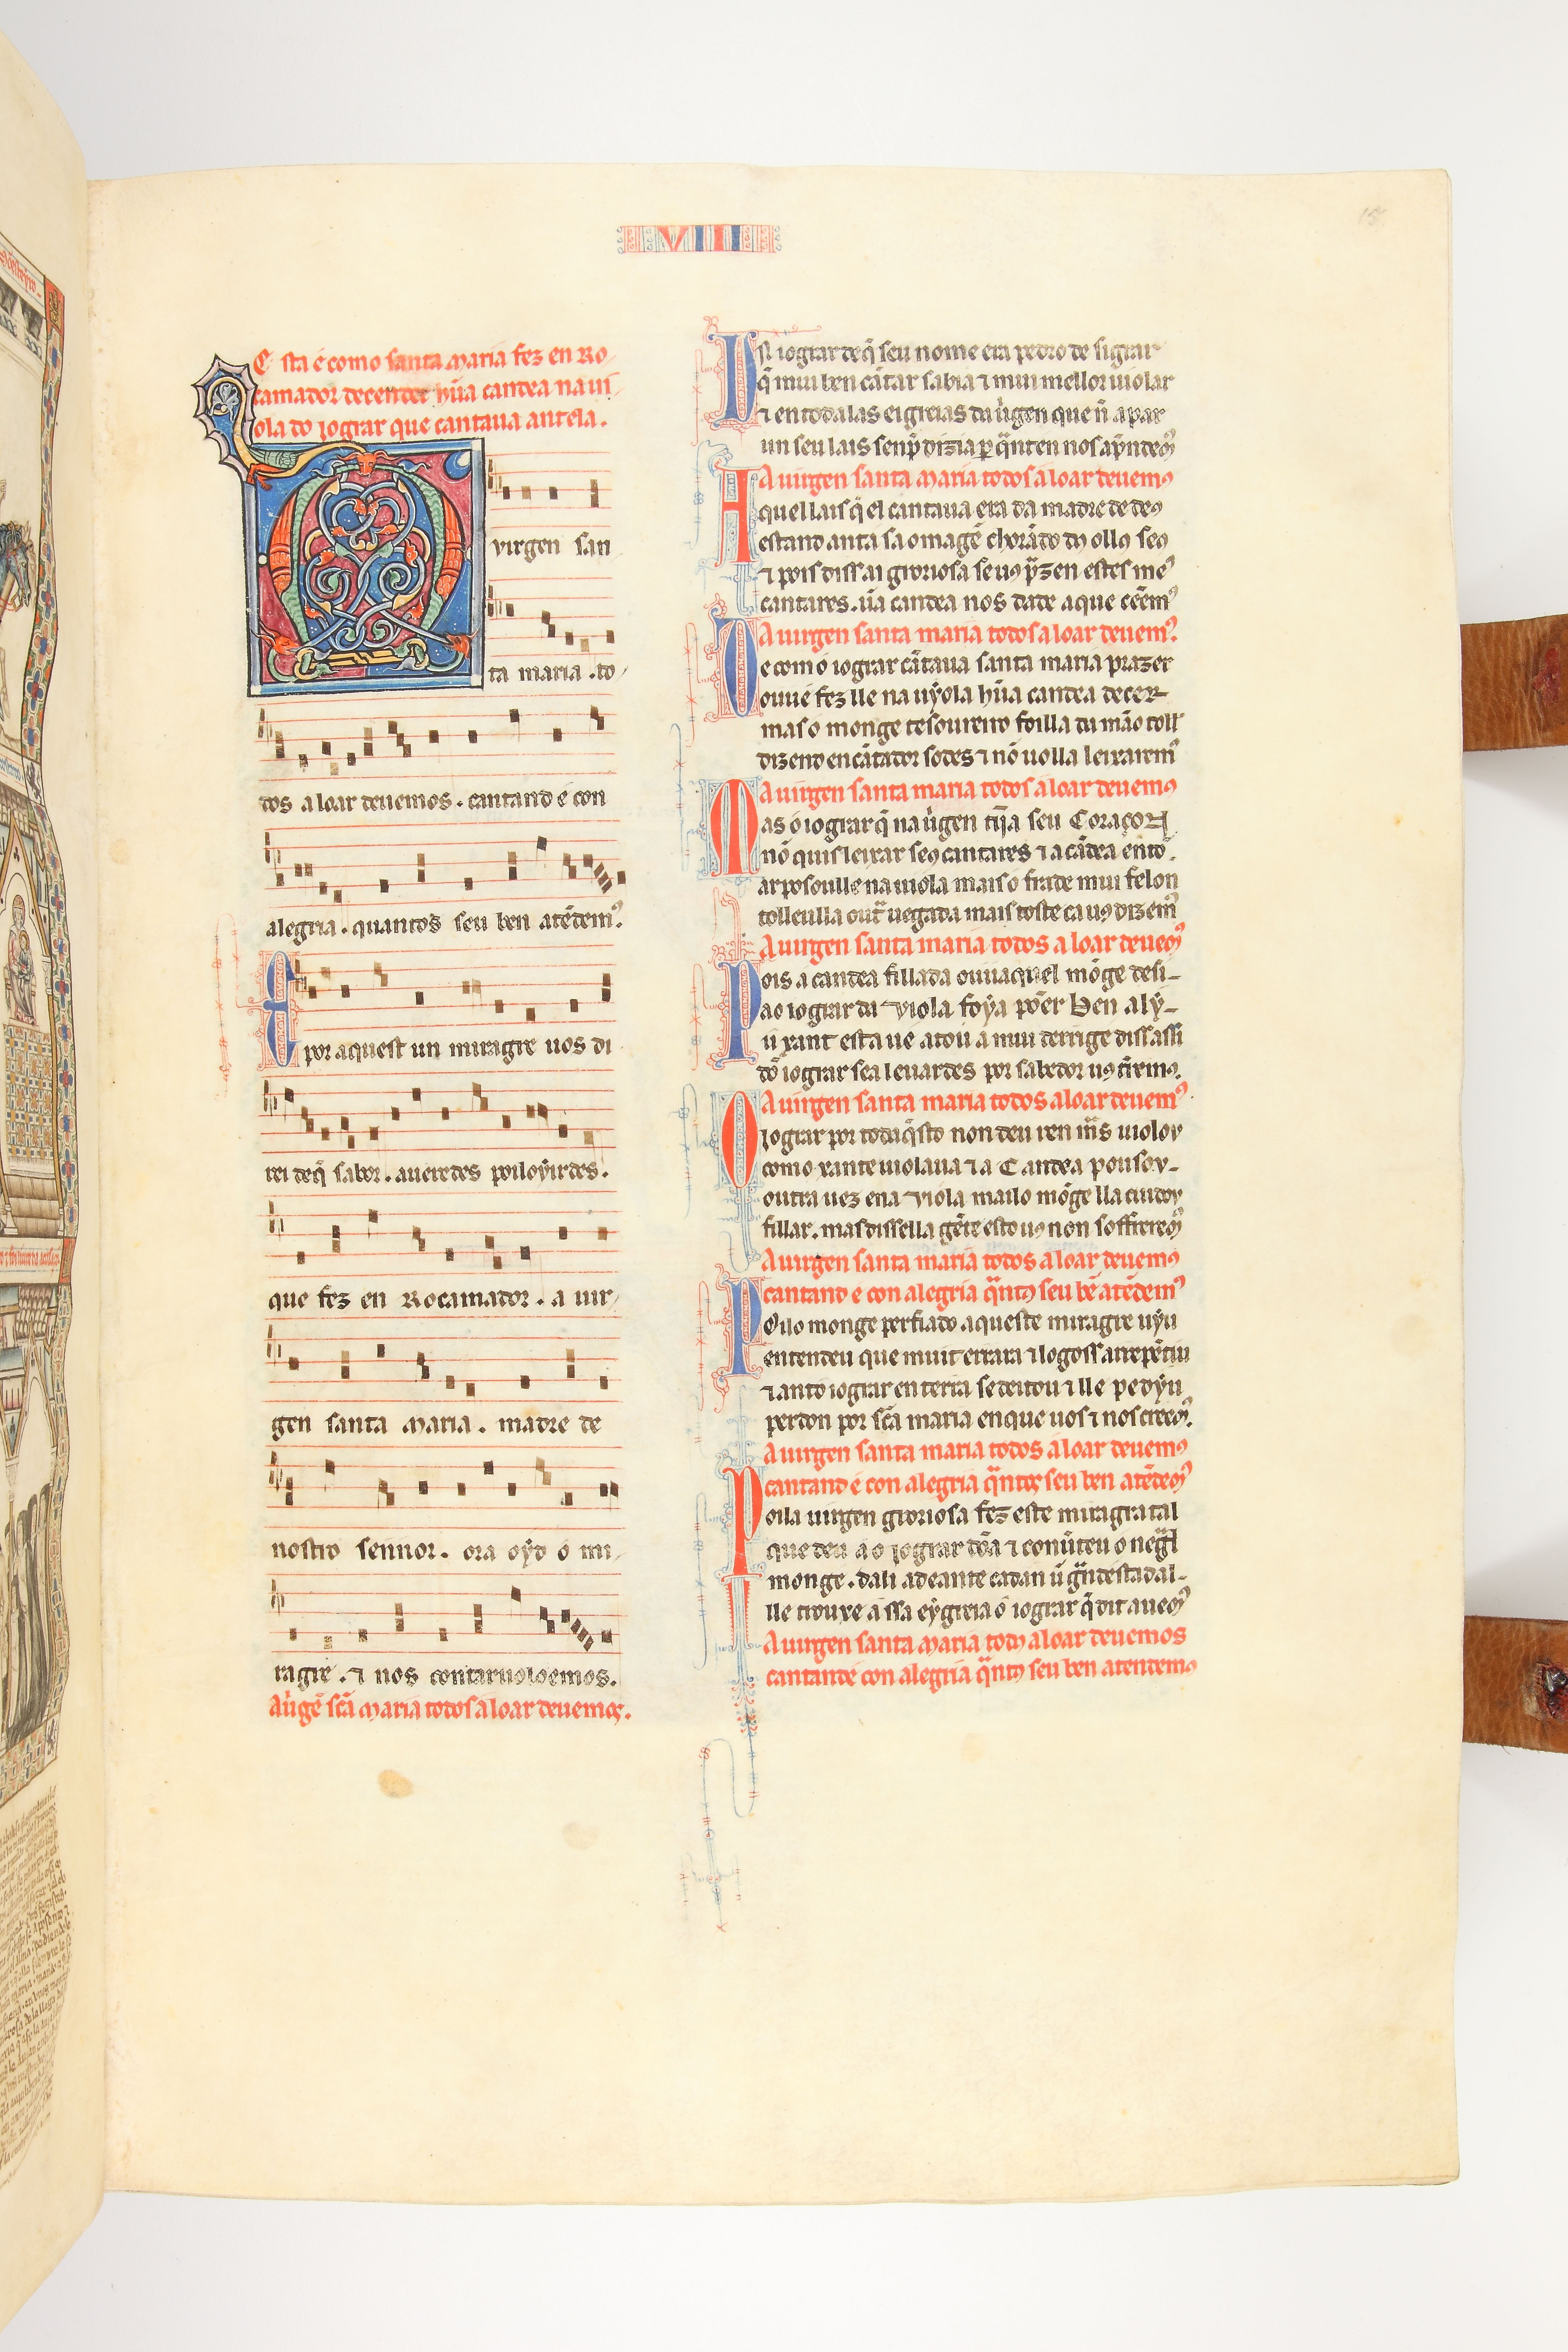 VIII
15
Esta é como santa maria fez en Ro
camador decender hũa candea na ui
ola do iograr que cantaua antela.
A virgen san
ta maria . to
dos a loar deuemos . cantand é con
alegria . quantos seu ben atẽdemꝰ.
E por aquest un miragre uos di
rei deq̃ sabor . aueredes poiloÿirdes .
que fez en Rocamador . a uir
gen santa maria . madre de
nostro sennor . ora oÿd o mi
ragre . ⁊ nos contaruoloemos .
Auirgẽ scã maria todos a loar deuemos .
Un iograr deq̃ seu nome era pedro de sigrar
q̃ mui ben cãtar sabia ⁊ mui mellor uiolar
⁊ en todalas eigreias da uirgen que nõ a par
un seu lais senp̃ dizia ꝑ q̃nten nos ap̃ndemꝰ
A uirgen santa maria todos a loar deuemꝰ
Aquel lais q̃ el cantaua era da madre de deꝰ
estand anta sa omagẽ chorãdo dꝰ ollꝰ seꝰ
⁊ pois diss ai groriosa se uꝰ p̃zen estes meꝰ
cantares . ũa candea nos dade a que cẽemꝰ
A uirgen santa maria todos a loar deuemꝰ.
De com o iograr cãtaua santa maria prazer
ouue ⁊ fez lle na uÿola hũa candea decer
mas o monge tesoureiro foilla da mão toll
dizend encãtador sodes ⁊ nõ uolla leixaremꝰ
A uirgen santa maria todos a loar deuemꝰ
Mas o iograr q̃ na uirgen tĩja seu Coraçon
nõ quis leixar seꝰ cantares ⁊ a cãdea entõ .
ar posoulle na uiola mais o frade mui felon
tolleulla outr̃ uegada mais toste ca uꝰ dizemꝰ
A uirgen santa maria todos a loar deuemꝰ
Pois a candea fillada ouu aquel mõge desi
ao iograr da viola foÿa põer ben alÿ
u x ant esta ue atou a mui derrige diss assi
dõ iograr se a leuardes por sabedor uꝰ tẽrmꝰ.
A uirgen santa maria todos a loar deuemꝰ
O iograr por tod aq̃sto non deu ren mas uiolou
como x ante uiolaua ⁊ a Candea pousou
outra uez ena viola mailo mõge lla cuidou
fillar . mas dissella gẽte esto uꝰ non soffreremꝰ
A uirgen santa maria todos a loar deuemꝰ
cantand e con alegria q̃ntꝰ seu bẽ atẽdemꝰ
Poilo monge perfiado aqueste miragre uÿu
entendeu que muit errara ⁊ logo ss arrepẽtiu
⁊ ant o iograr en terra se deitou ⁊ lle pedÿu
perdon por scã maria en que uos ⁊ nos creemꝰ.
A uirgen santa maria todos a loar deuemꝰ
cantand é con alegria q̃ntos seu ben atẽdemꝰ
Poila uirgen groriosa fez este miragr atal
que deu a o iograr dõa ⁊ conũteu o negral
monge . dali adeante cadan ũ grãd estadal
lle trouxe a ssa eÿgreia o iograr q̃ dit auemꝰ
A uirgen santa maria todꝰ a loar deuemos
cantand é con alegria q̃ntꝰ seu ben atendemꝰ